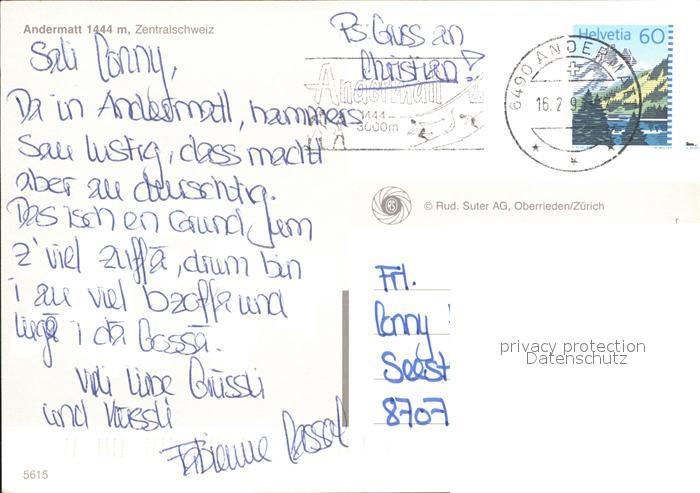 Andermatt 1444 m, Zentralschweiz
Sali Conny,
Da in Andermatt, hammers
Sau lustig, dass macht
aber au durschtig.
Das isch en Grund, zum
z'viel zuffä, drum bin
i au viel bzoffe und
liegä i dä Gossä.
Vili liebe Grüssli
und Küssli
Fabienne
Ps: Gruss an
Christian!
Andermatt
1444
3000m
6490 ANDERMA
16.2.9
Helvetia 60
© Rud. Suter AG, Oberrieden/Zürich
Frl.
Conny
Seest
8707
privacy protection
Datenschutz
5615